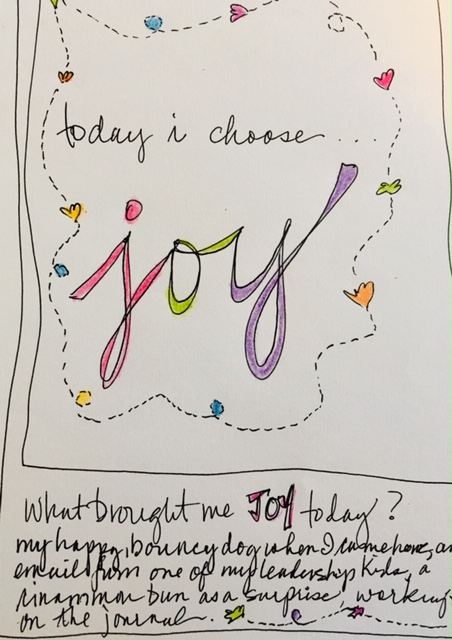 today i choose...
joy
What brought me JOY today?
my happy, bouncy dog when I came home, an
email from one of my leadership kids, a
cinnammon bun as a surprise, working
on the journal.